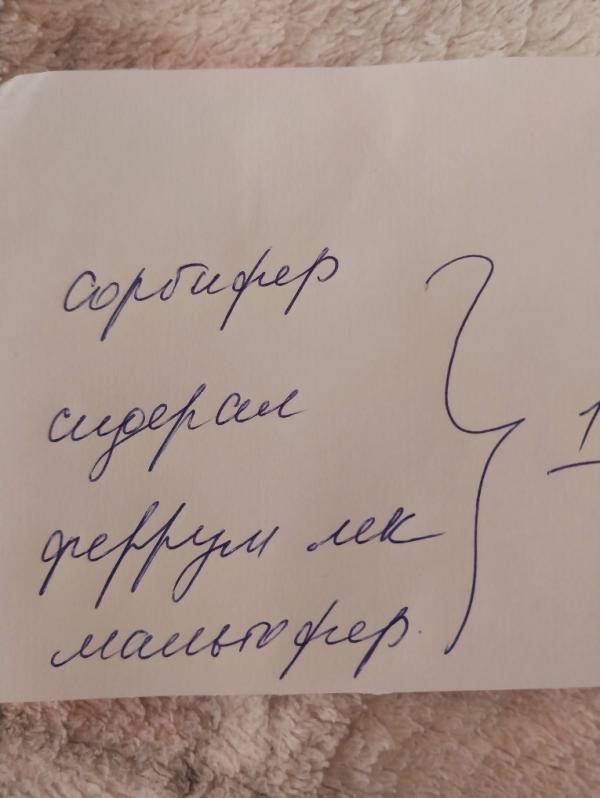 сорбифер
сидерал
феррум лек
мальтофер.
1